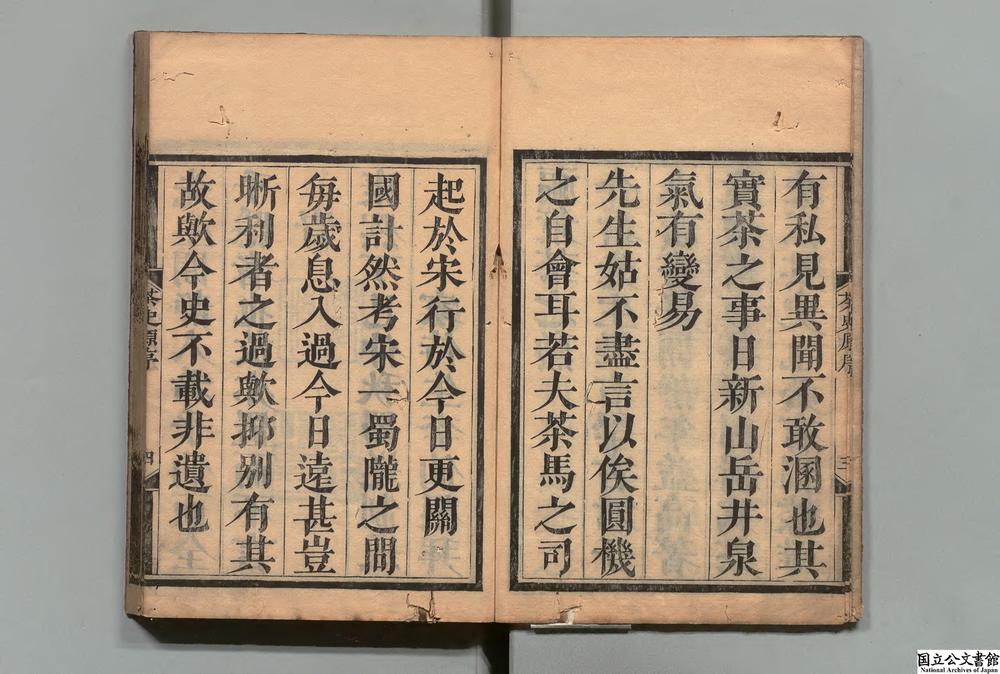 有私見異聞不敢溷也其
實茶之事日新山岳井泉
氣有變易
先生姑不盡言以俟圓機
之自會耳若夫茶馬之司
起於宋行於今日更關
國計然考宋蜀隴之間
每歲息入過今日遠甚豈
晰利者之過歟抑别有其
故歟今史不載非遺也
茶史原序
三
茶史原序
四
国立公文書館
National Archives of Japan